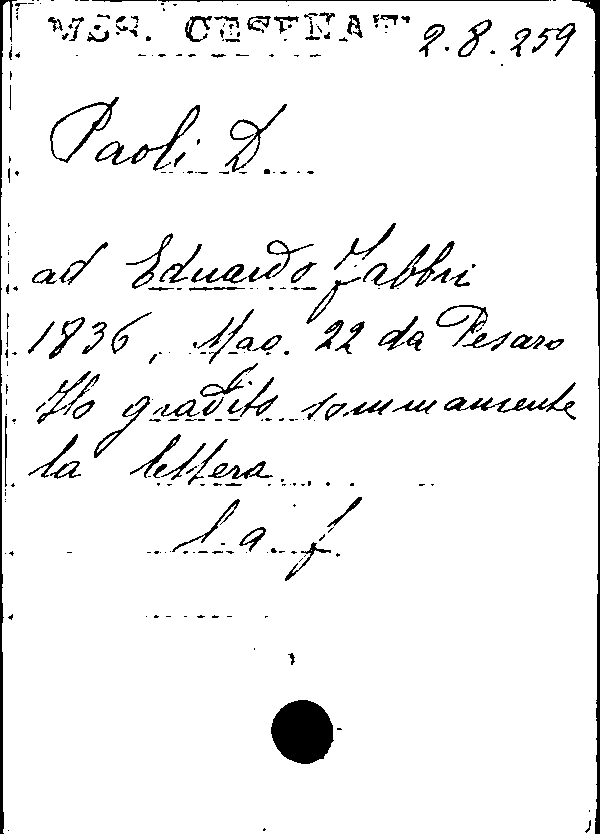 MSS. CESENAT 2.8.259
Paoli D.
ad Eduardo Fabbri
1836, Mag. 22 da Pesaro
Ho gradito sommamente
la lettera.
l. a. f.